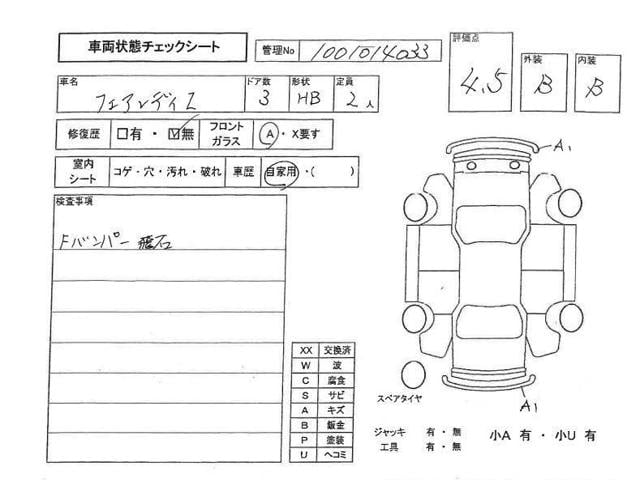 車両状態チェックシート
管理No 1001014033
評価点 4.5
外装 B
内装 B
車名 フェアレディZ
ドア数 3
形状 HB
定員 2人
修復歴 □有・☑無
フロントガラス A・X要す
室内シート コゲ・穴・汚れ・破れ
車歴 自家用・( )
検査事項
Fバンパー 飛石
A1
XX 交換済
W 波
C 腐食
S サビ
A キズ
B 鈑金
P 塗装
U ヘコミ
スペアタイヤ
A1
ジャッキ 有・無
工具 有・無
小A 有・小U 有